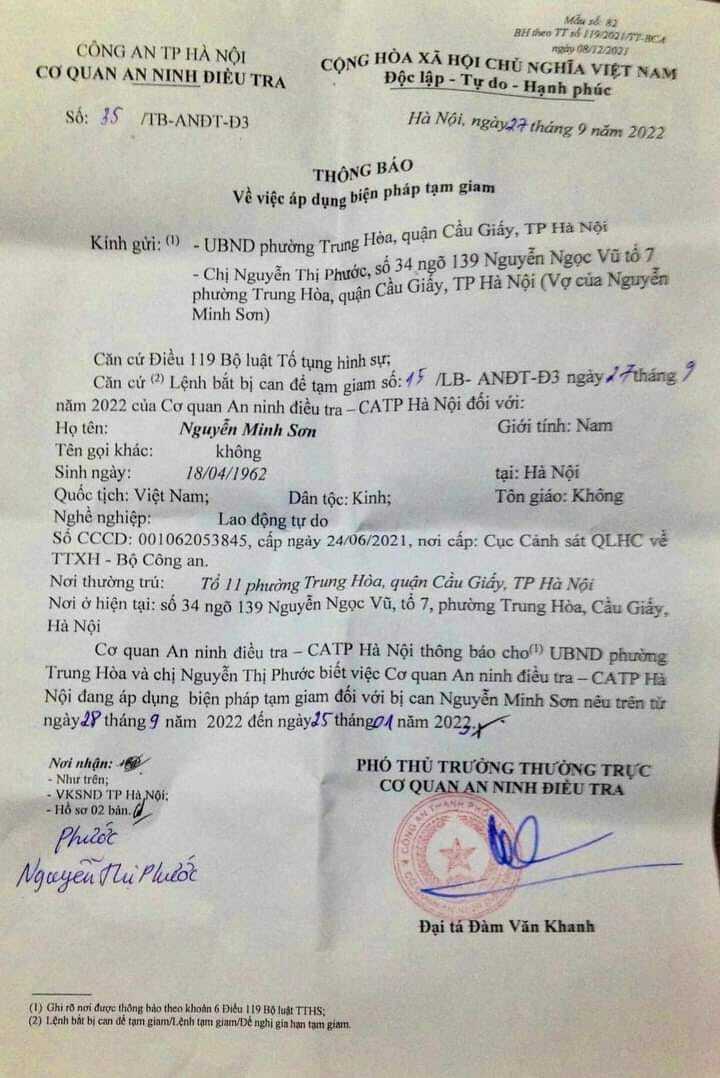 Mẫu số: 82
BH theo TT số 119/2021/TT-BCA
ngày 08/12/2021
CÔNG AN TP HÀ NỘI
CƠ QUAN AN NINH ĐIỀU TRA
CỘNG HÒA XÃ HỘI CHỦ NGHĨA VIỆT NAM
Độc lập - Tự do - Hạnh phúc
Số: 35 /TB-ANĐT-Đ3
Hà Nội, ngày 27 tháng 9 năm 2022
THÔNG BÁO
Về việc áp dụng biện pháp tạm giam
Kính gửi: (1) - UBND phường Trung Hòa, quận Cầu Giấy, TP Hà Nội
- Chị Nguyễn Thị Phước, số 34 ngõ 139 Nguyễn Ngọc Vũ tổ 7
phường Trung Hòa, quận Cầu Giấy, TP Hà Nội (Vợ của Nguyễn
Minh Sơn)
Căn cứ Điều 119 Bộ luật Tố tụng hình sự;
Căn cứ (2) Lệnh bắt bị can để tạm giam số: 15 /LB- ANĐT-Đ3 ngày 27 tháng 9
năm 2022 của Cơ quan An ninh điều tra – CATP Hà Nội đối với:
Họ tên: Nguyễn Minh Sơn Giới tính: Nam
Tên gọi khác: không
Sinh ngày: 18/04/1962 tại: Hà Nội
Quốc tịch: Việt Nam; Dân tộc: Kinh; Tôn giáo: Không
Nghề nghiệp: Lao động tự do
Số CCCD: 001062053845, cấp ngày 24/06/2021, nơi cấp: Cục Cảnh sát QLHC về
TTXH - Bộ Công an.
Nơi thường trú: Tổ 11 phường Trung Hòa, quận Cầu Giấy, TP Hà Nội
Nơi ở hiện tại: số 34 ngõ 139 Nguyễn Ngọc Vũ, tổ 7, phường Trung Hòa, Cầu Giấy,
Hà Nội
Cơ quan An ninh điều tra – CATP Hà Nội thông báo cho(1) UBND phường
Trung Hòa và chị Nguyễn Thị Phước biết việc Cơ quan An ninh điều tra – CATP Hà
Nội đang áp dụng biện pháp tạm giam đối với bị can Nguyễn Minh Sơn nêu trên từ
ngày 28 tháng 9 năm 2022 đến ngày 25 tháng 01 năm
Nơi nhận:
- Như trên;
- VKSND TP Hà Nội;
- Hồ sơ 02 bản.
PHÓ THỦ TRƯỞNG THƯỜNG TRỰC
CƠ QUAN AN NINH ĐIỀU TRA
Phước
Nguyễn Thị Phước
Đại tá Đàm Văn Khanh
(1) Ghi rõ nơi được thông báo theo khoản 6 Điều 119 Bộ luật TTHS;
(2) Lệnh bắt bị can để tạm giam/Lệnh tạm giam/Đề nghị gia hạn tạm giam.